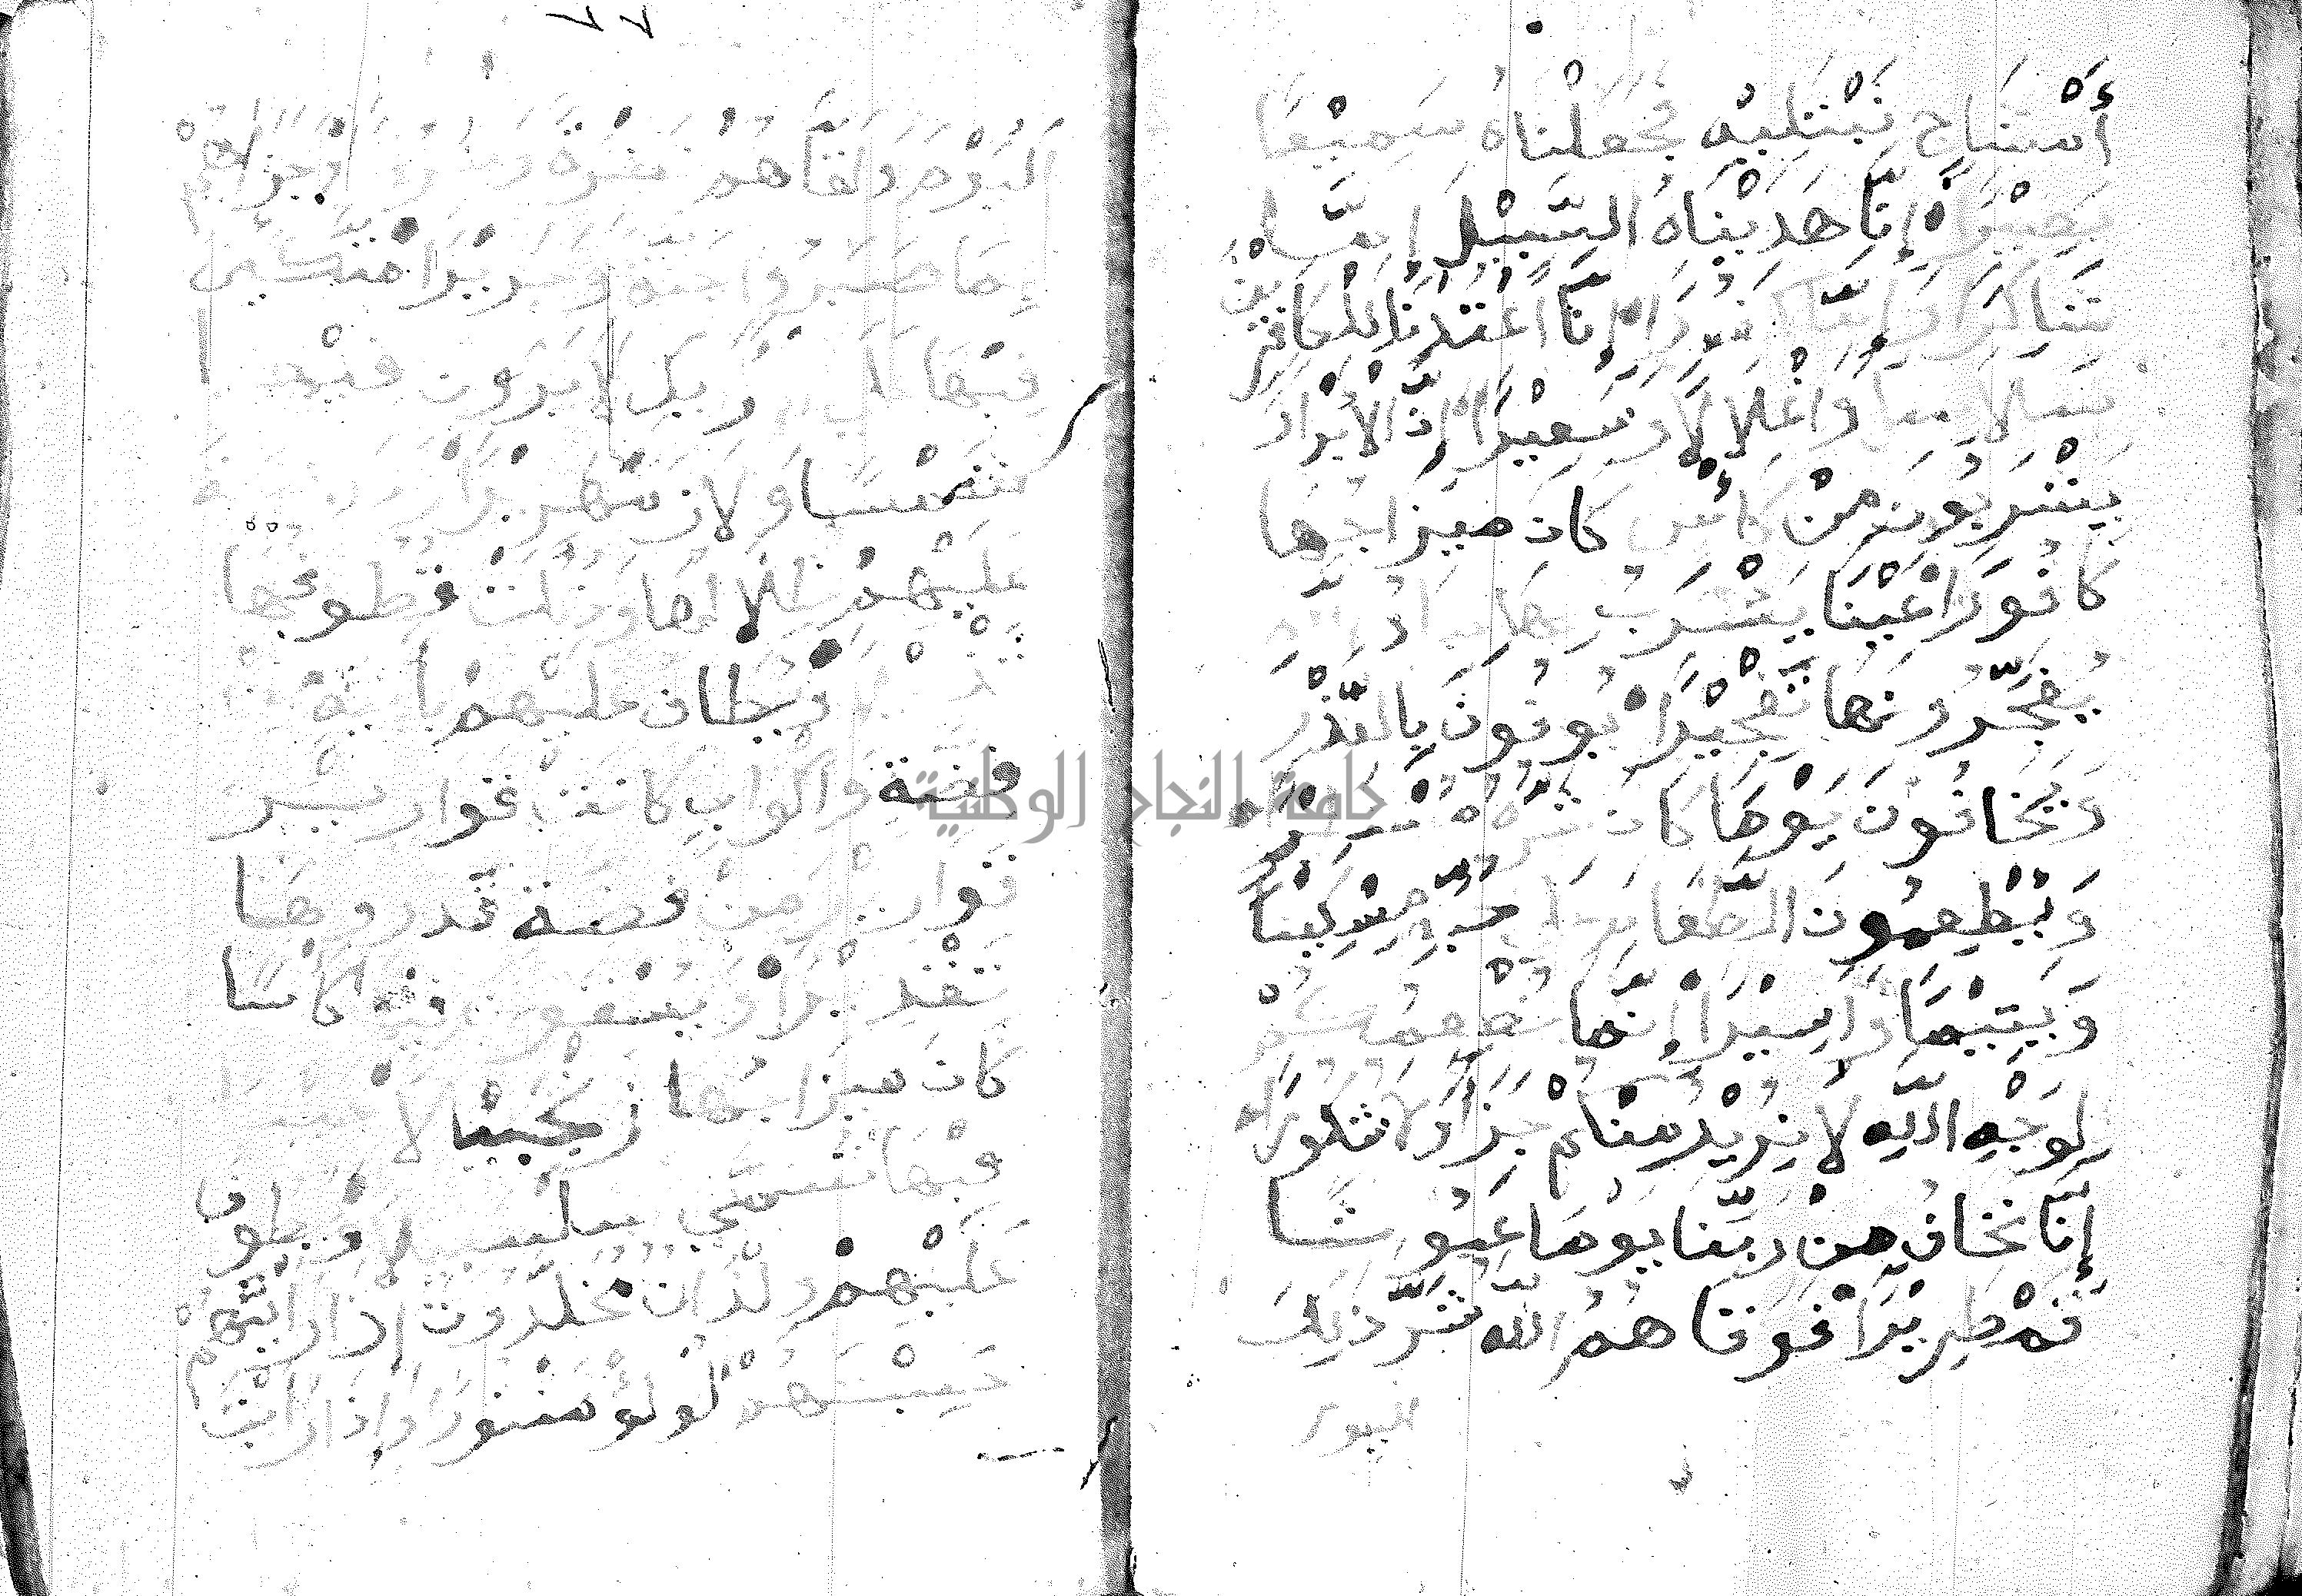 أَمْشَاجٍ نَبْتَلِيْهِ فَجَعَلْنَاهُ سَمِيْعًا
بَصِيْرًا إِنَّا هَدَيْنَاهُ السَّبِيْلَ إِمَّا
شَاكِرًا وَإِمَّا كَفُوْرًا إِنَّا أَعْتَدْنَا لِلْكَافِرِيْنَ
سَلَاسِلَا وَأَغْلَالًا وَسَعِيْرًا إِنَّ الْأَبْرَارَ
يَشْرَبُوْنَ مِنْ كَأْسٍ كَانَ مِيزَاجُهَا
كَافُوْرًا عَيْنًا يَشْرَبُ بِهَا عِبَادُ اللّٰهِ
يُفَجِّرُوْنَهَا تَفْجِيْرًا يُوفُوْنَ بِالنَّذْرِ
وَيَخَافُوْنَ يَوْمًا كَانَ شَرُّهُ مُسْتَطِيْرًا
وَيُطْعِمُوْنَ الطَّعَامَ عَلَى حُبِّهِ مِسْكِيْنًا
وَيَتِيْمًا وَأَسِيْرًا إِنَّمَا نُطْعِمُكُمْ
لِوَجْهِ اللّٰهِ لَا نُرِيْدُ مِنْكُمْ جَزَاءً وَلَا شُكُورًا
إِنَّا نَخَافُ مِنْ رَبِّنَا يَوْمًا عَبُوسًا
قَمْطَرِيْرًا فَوَقَاهُمُ اللّٰهُ شَرَّ ذٰلِكَ
اليوم
٧٧
الْيَوْمِ وَلَقَّاهُمْ نَضْرَةً وَسُرُوْرًا وَجَزَاهُمْ
بِمَا صَبَرُوا جَنَّةً وَحَرِيْرًا مُتَّكِئِيْنَ
فِيْهَا عَلَى لَا يَرَوْنَ فِيْهَا
شَمْسًا وَلَا زَمْهَرِيْرًا وَدَانِيَةً
عَلَيْهِمْ ظِلَالُهَا وَذُلِّلَتْ قُطُوفُهَا
تَذْلِيْلًا وَيُطَافُ عَلَيْهِمْ بِآنِيَةٍ مِنْ
فِضَّةٍ وَأَكْوَابٍ كَانَتْ قَوَارِيْرَ
قَوَارِيْرَ مِنْ فِضَّةٍ قَدَّرُوهَا
تَقْدِيْرًا وَيُسْقَوْنَ فِيْهَا كَأْسًا
كَانَ مِيزَاجُهَا زَنْجَبِيْلًا عَيْنًا
فِيْهَا تُسَمَّى سَلْسَبِيْلًا وَيَطُوفُ
عَلَيْهِمْ وِلْدَانٌ مُخَلَّدُوْنَ إِذَا رَأَيْتَهُمْ
حَسِبْتَهُمْ لُؤْلُؤًا مَنْثُورًا وَإِذَا رَأَيْتَ
جامعة النجاح الوطنية